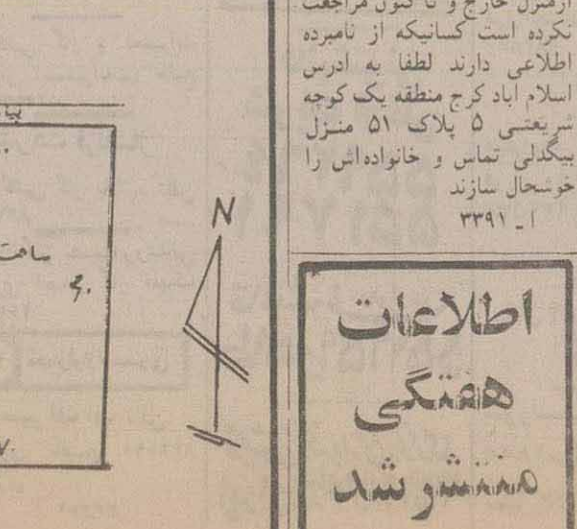 ازمنزل خارج و تا کنون مراجعت
نکرده است کسانیکه از نامبرده
اطلاعی دارند لطفا به ادرس
اسلام اباد کرج منطقه یک کوچه
شریعتی ۵ پلاک ۵۱ منزل
بیگدلی تماس و خانواده‌اش را
خوشحال سازند
ا ـ ۳۳۹۱
اطلاعات
هفتگی
منتشر شد
N